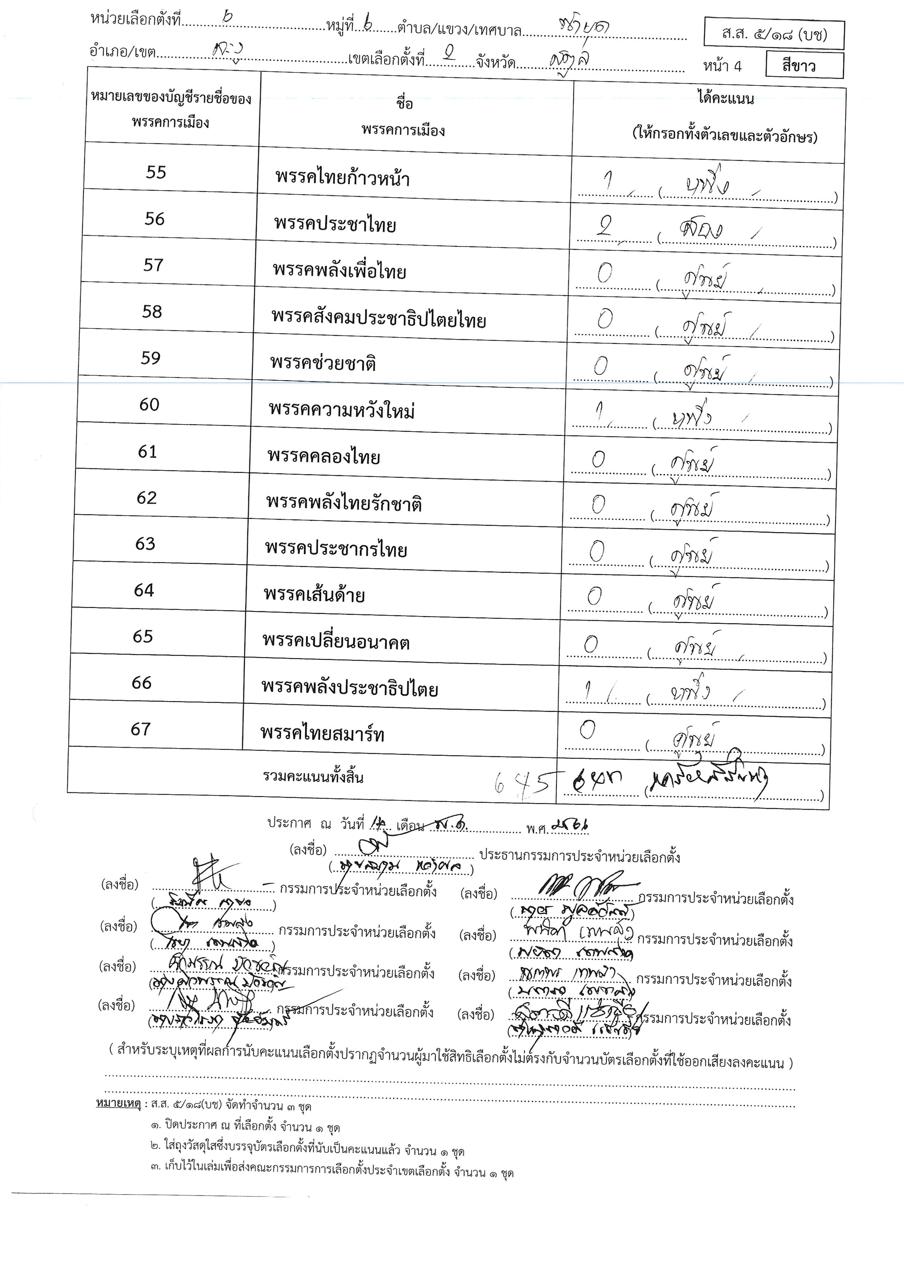 หน่วยเลือกตั้งที่ ๖ หมู่ที่ ๖ ตำบล/แขวง/เทศบาล
ส.ส. ๕/๑๘ (บช)
อำเภอ/เขต ละงู เขตเลือกตั้งที่ 2 จังหวัด สตูล
หน้า 4 สีขาว
หมายเลขของบัญชีรายชื่อของพรรคการเมือง ชื่อพรรคการเมือง ได้คะแนน (ให้กรอกทั้งตัวเลขและตัวอักษร)
55 พรรคไทยก้าวหน้า 1 (หนึ่ง)
56 พรรคประชาไทย 2 (สอง)
57 พรรคพลังเพื่อไทย 0 (ศูนย์)
58 พรรคสังคมประชาธิปไตยไทย 0 (ศูนย์)
59 พรรคช่วยชาติ 0 (ศูนย์)
60 พรรคความหวังใหม่ 1 (หนึ่ง)
61 พรรคคลองไทย 0 (ศูนย์)
62 พรรคพลังไทยรักชาติ 0 (ศูนย์)
63 พรรคประชากรไทย 0 (ศูนย์)
64 พรรคเส้นด้าย 0 (ศูนย์)
65 พรรคเปลี่ยนอนาคต 0 (ศูนย์)
66 พรรคพลังประชาธิปไตย 1 (หนึ่ง)
67 พรรคไทยสมาร์ท 0 (ศูนย์)
รวมคะแนนทั้งสิ้น 645
ประกาศ ณ วันที่ ๑๔ เดือน พ.ค. พ.ศ. ๒๕๖๖
(ลงชื่อ) ประธานกรรมการประจำหน่วยเลือกตั้ง
(ลงชื่อ) กรรมการประจำหน่วยเลือกตั้ง (ลงชื่อ) กรรมการประจำหน่วยเลือกตั้ง
(ลงชื่อ) กรรมการประจำหน่วยเลือกตั้ง (ลงชื่อ) กรรมการประจำหน่วยเลือกตั้ง
(ลงชื่อ) กรรมการประจำหน่วยเลือกตั้ง (ลงชื่อ) กรรมการประจำหน่วยเลือกตั้ง
(ลงชื่อ) กรรมการประจำหน่วยเลือกตั้ง (ลงชื่อ) กรรมการประจำหน่วยเลือกตั้ง
( สำหรับระบุเหตุที่ผลการนับคะแนนเลือกตั้งปรากฏจำนวนผู้มาใช้สิทธิเลือกตั้งไม่ตรงกับจำนวนบัตรเลือกตั้งที่ใช้ออกเสียงลงคะแนน )
หมายเหตุ : ส.ส. ๕/๑๘(บช) จัดทำจำนวน ๓ ชุด
๑. ปิดประกาศ ณ ที่เลือกตั้ง จำนวน ๑ ชุด
๒. ใส่ถุงวัสดุใสซึ่งบรรจุบัตรเลือกตั้งที่นับเป็นคะแนนแล้ว จำนวน ๑ ชุด
๓. เก็บไว้ในเล่มเพื่อส่งคณะกรรมการการเลือกตั้งประจำเขตเลือกตั้ง จำนวน ๑ ชุด